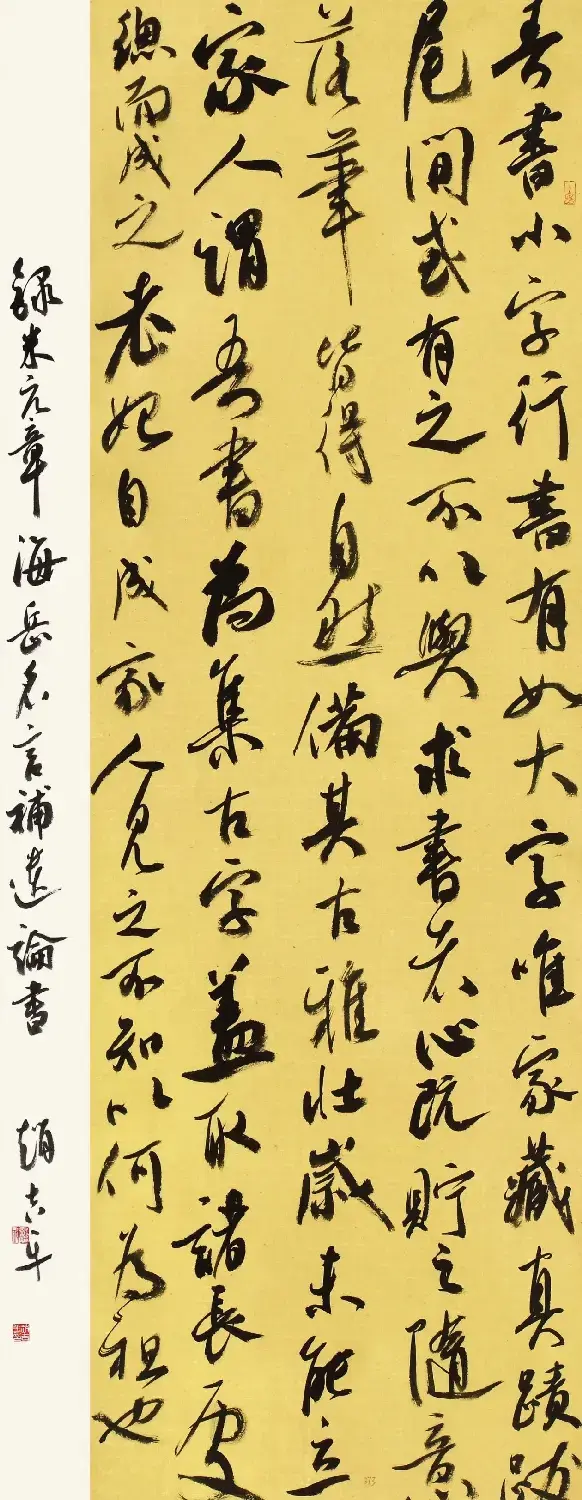 吾書小字行書有如大字唯家藏真蹟跋
尾間或有之不以與求書者心既貯之隨意
落筆皆得自然備其古雅壯歲未能立
家人謂吾書為集古字蓋取諸長處
總而成之老始自成家人見之不知以何為祖也
錄米元章海岳名言補遺論書 趙